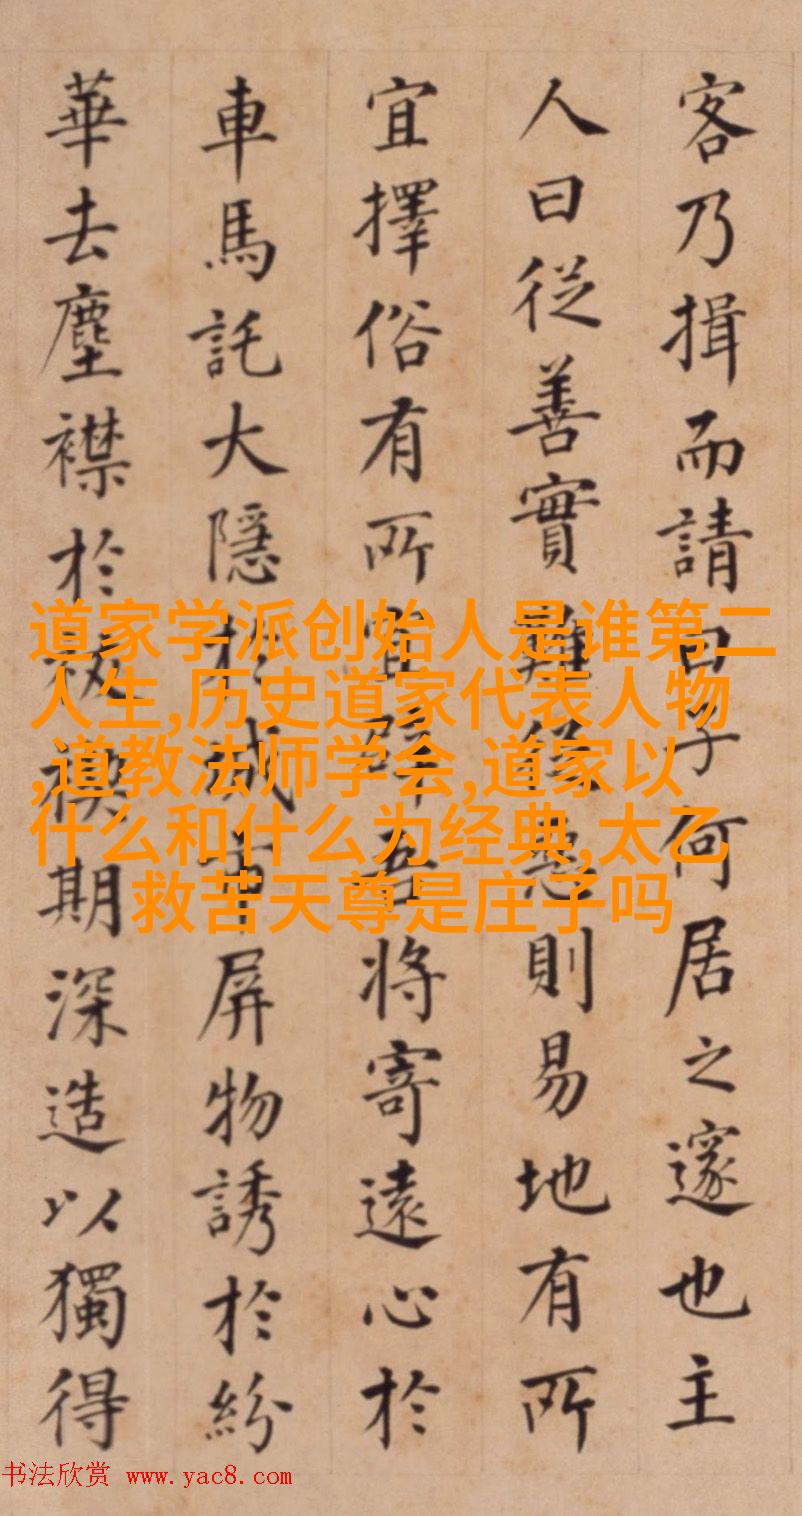 客乃揖而請曰子何居之邃也主
人曰從善實難從惡則易地有所
宜擇俗有所宜辟吾將寄遠心於
車馬託大隱於城市屏物誘於紛
華去塵襟於祓禊期深造以獨得
道家学派创始人是谁第二
人生,历史道家代表人物
,道教法师学会,道家以
什么和什么为经典,太乙
救苦天尊是庄子吗
书法欣赏 www.yac8.com